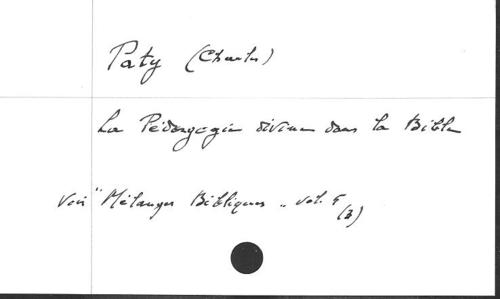 Paty (Charles)
La Pédagogie divine dans la Bible
Voir "Mélanges Bibliques" vol. 5
(3)